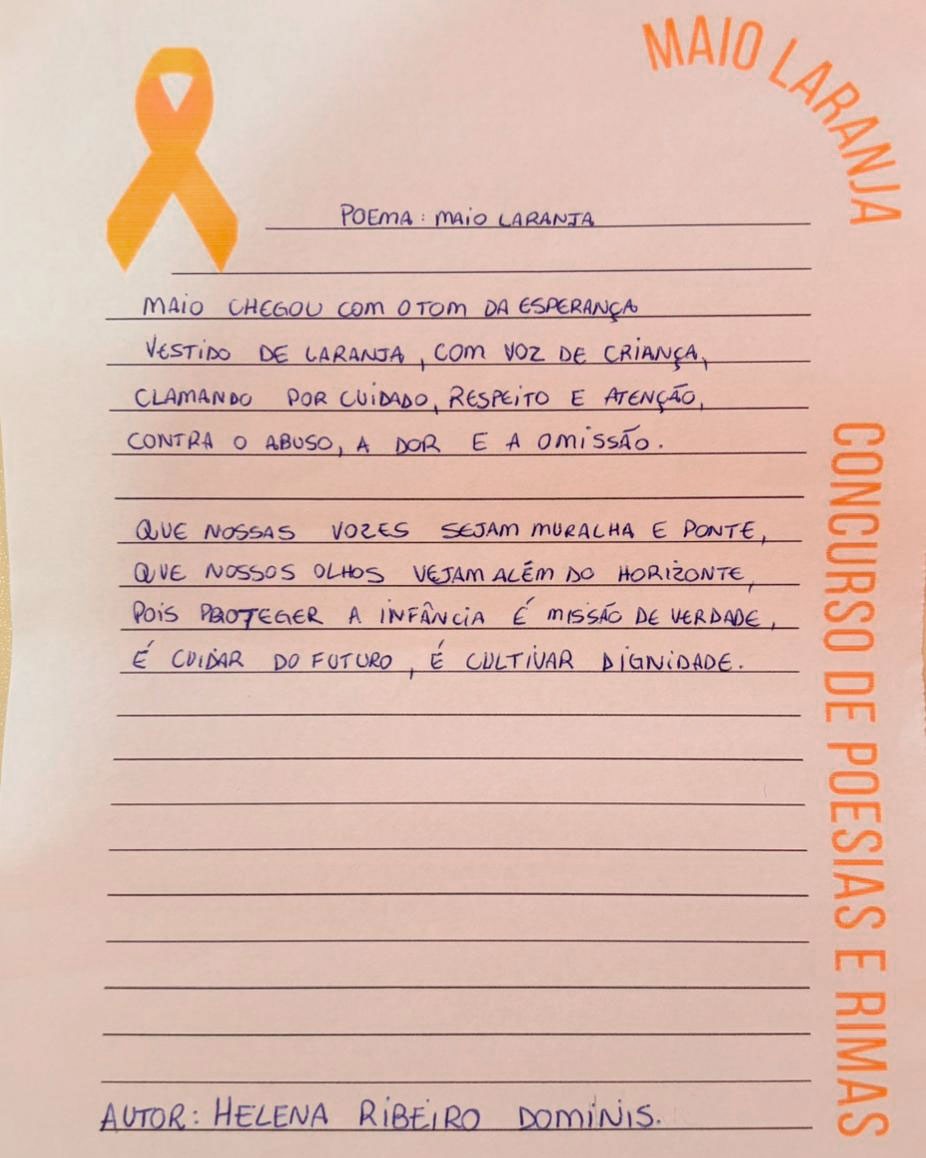 MAIO LARANJA
POEMA: MAIO LARANJA
MAIO CHEGOU COM O TOM DA ESPERANÇA
VESTIDO DE LARANJA, COM VOZ DE CRIANÇA,
CLAMANDO POR CUIDADO, RESPEITO E ATENÇÃO,
CONTRA O ABUSO, A DOR E A OMISSÃO.
QUE NOSSAS VOZES SEJAM MURALHA E PONTE,
QUE NOSSOS OLHOS VEJAM ALÉM DO HORIZONTE,
POIS PROTEGER A INFÂNCIA É MISSÃO DE VERDADE,
É CUIDAR DO FUTURO, É CULTIVAR DIGNIDADE.
AUTOR: HELENA RIBEIRO DOMINIS.
CONCURSO DE POESIAS E RIMAS